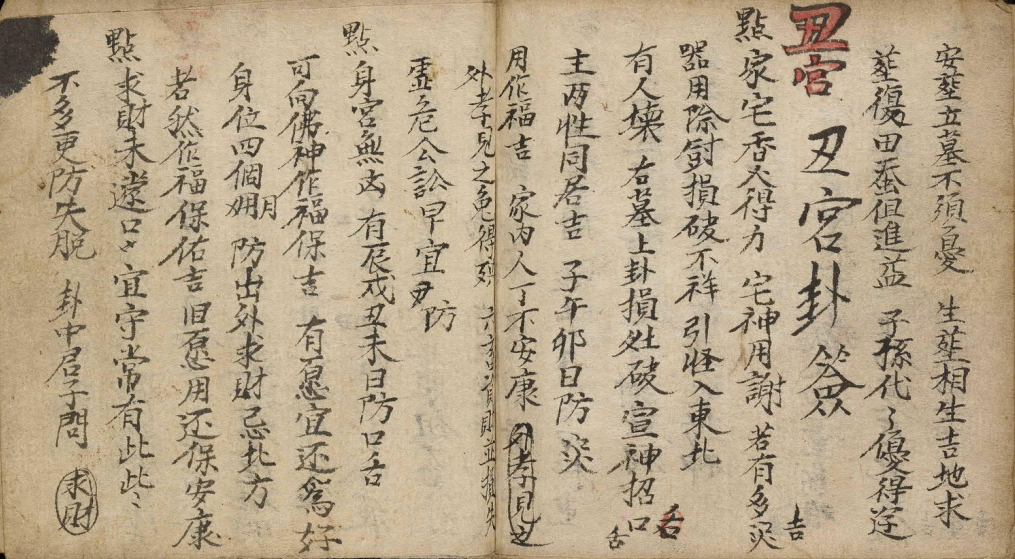 安墓立墓不須憂 生墓相生吉地求
墓復田蚕但進益 子孫代了優得
丑宮
丑宮卦
吉
點家宅香火得力 宅神用謝 若有多災
器用除 損破不祥 引怪入東北
舌
有人壞 右墓上卦損 破 宣神招口
舌
主两姓同居吉 子午卯日防災
用作福吉 家内人丁不安康 外孝見之
外孝見之免得
虚危公訟早宜 防
點身宮無凶 有辰戌丑未日防口舌
可向佛神作福保吉 有愿宜还為好
身位四個月 防出外求財忌北方
若然作福保佑吉 旧愿用还保安康
點求財未遂口 宜守常有此此
不多更防失脱 卦中君子問 求財